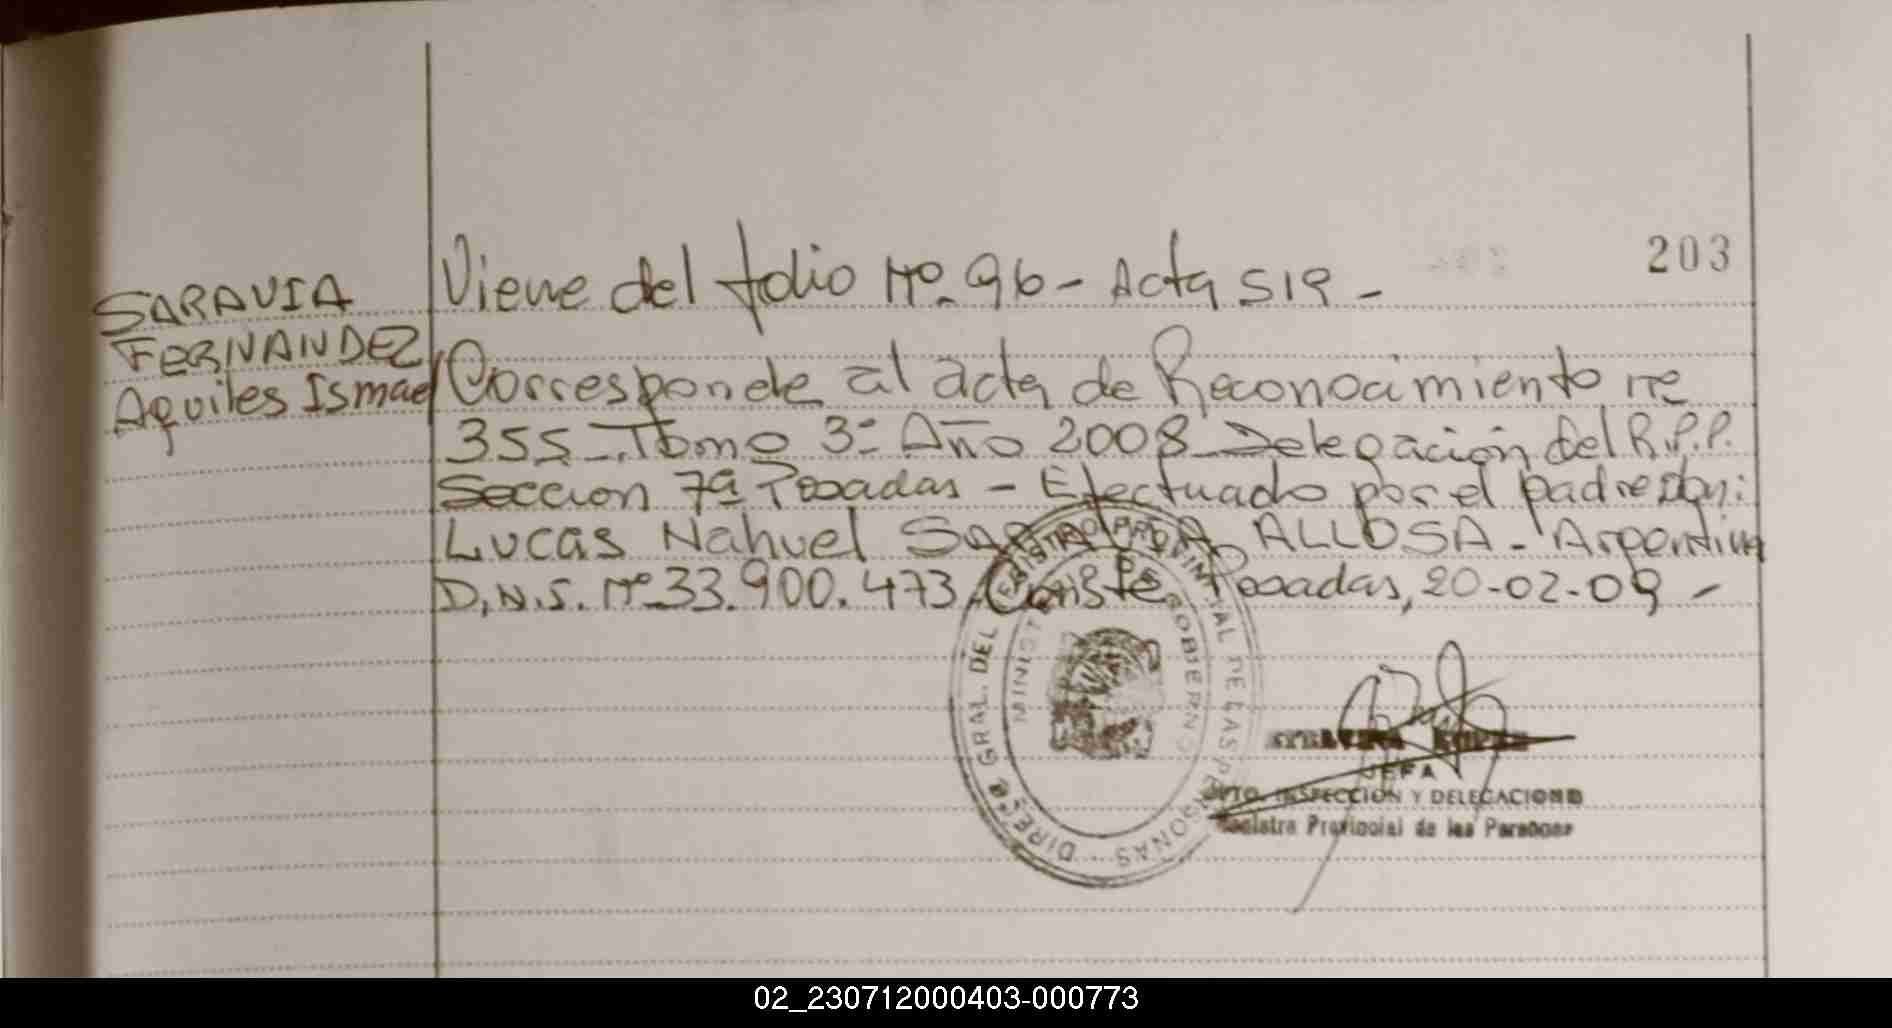 203
Viene del folio Nº 96 - Acta 519 -
SARAVIA
FERNANDEZ
Aquiles Ismael
Corresponde al acta de Reconocimiento nº
355 - Tomo 3º Año 2008 - Delegación del R.P.P.
Seccion 7ª Posadas - Efectuado por el padre don:
Lucas Nahuel SARAVIA ALLOSA - Argentino
D.N.I. Nº 33.900.473. Conste. Posadas, 20-02-09 -
DIREC. GRAL. DEL REGISTRO PROVINCIAL DE LAS PERSONAS
MINIST. DE GOBIERNO
JEFA
DPTO. INSPECCION Y DELEGACIONES
Registro Provincial de las Personas
02_230712000403-000773